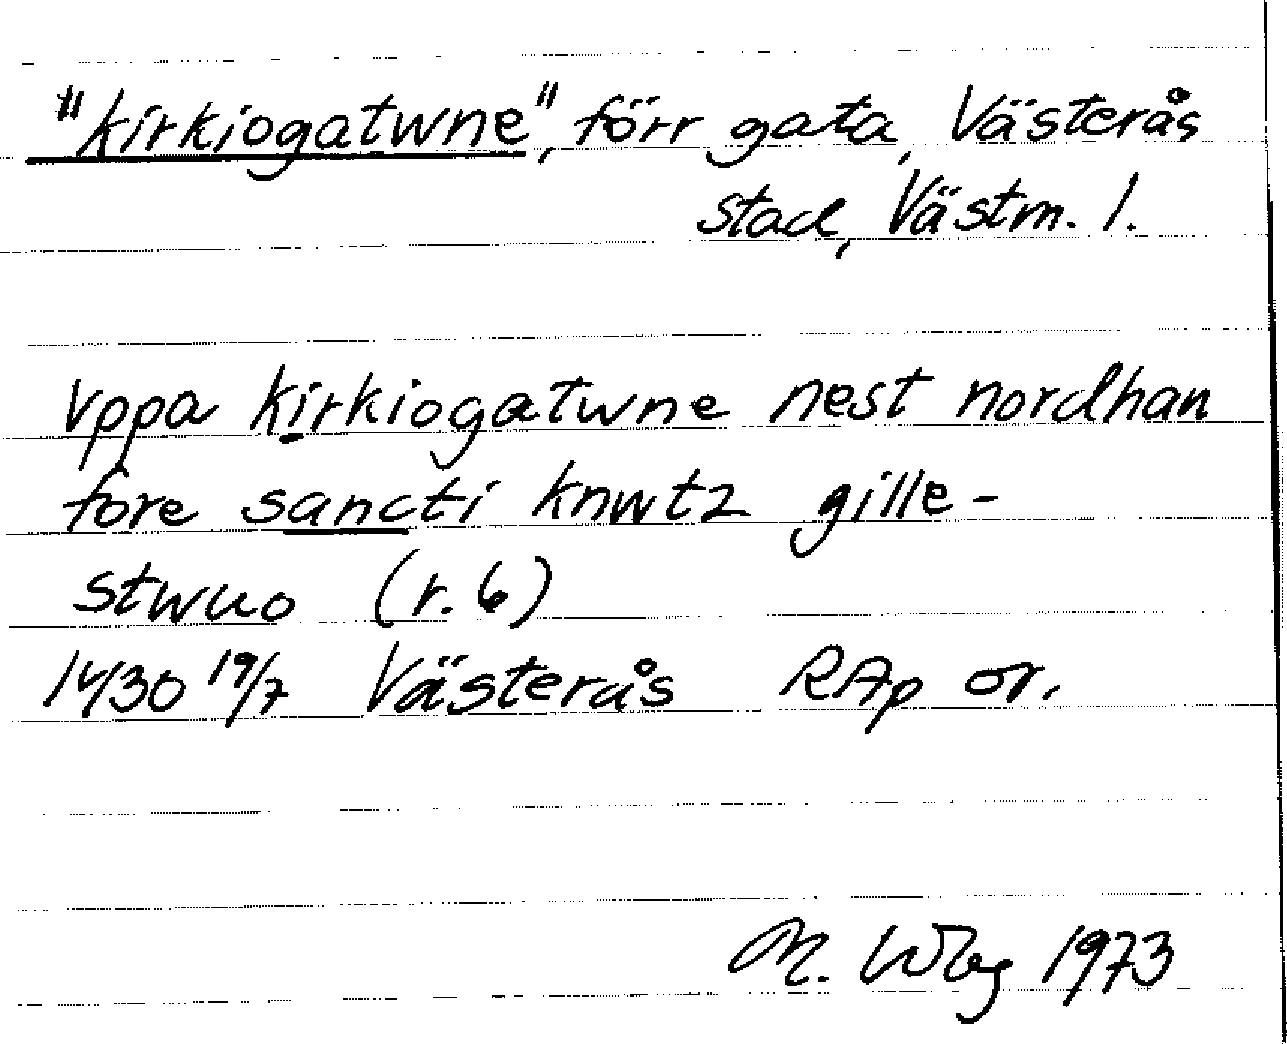 "kirkiogatwne", förr gata, Västerås
stad, Västm. l.
vppa kirkiogatwne nest nordhan
fore sancti knwtz gille-
stwuo (r. 6)
1430 19/7 Västerås RAp or.
M. Wbg 1973